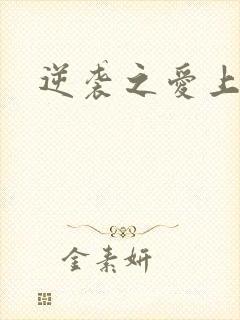 逆袭之爱上
金素妍